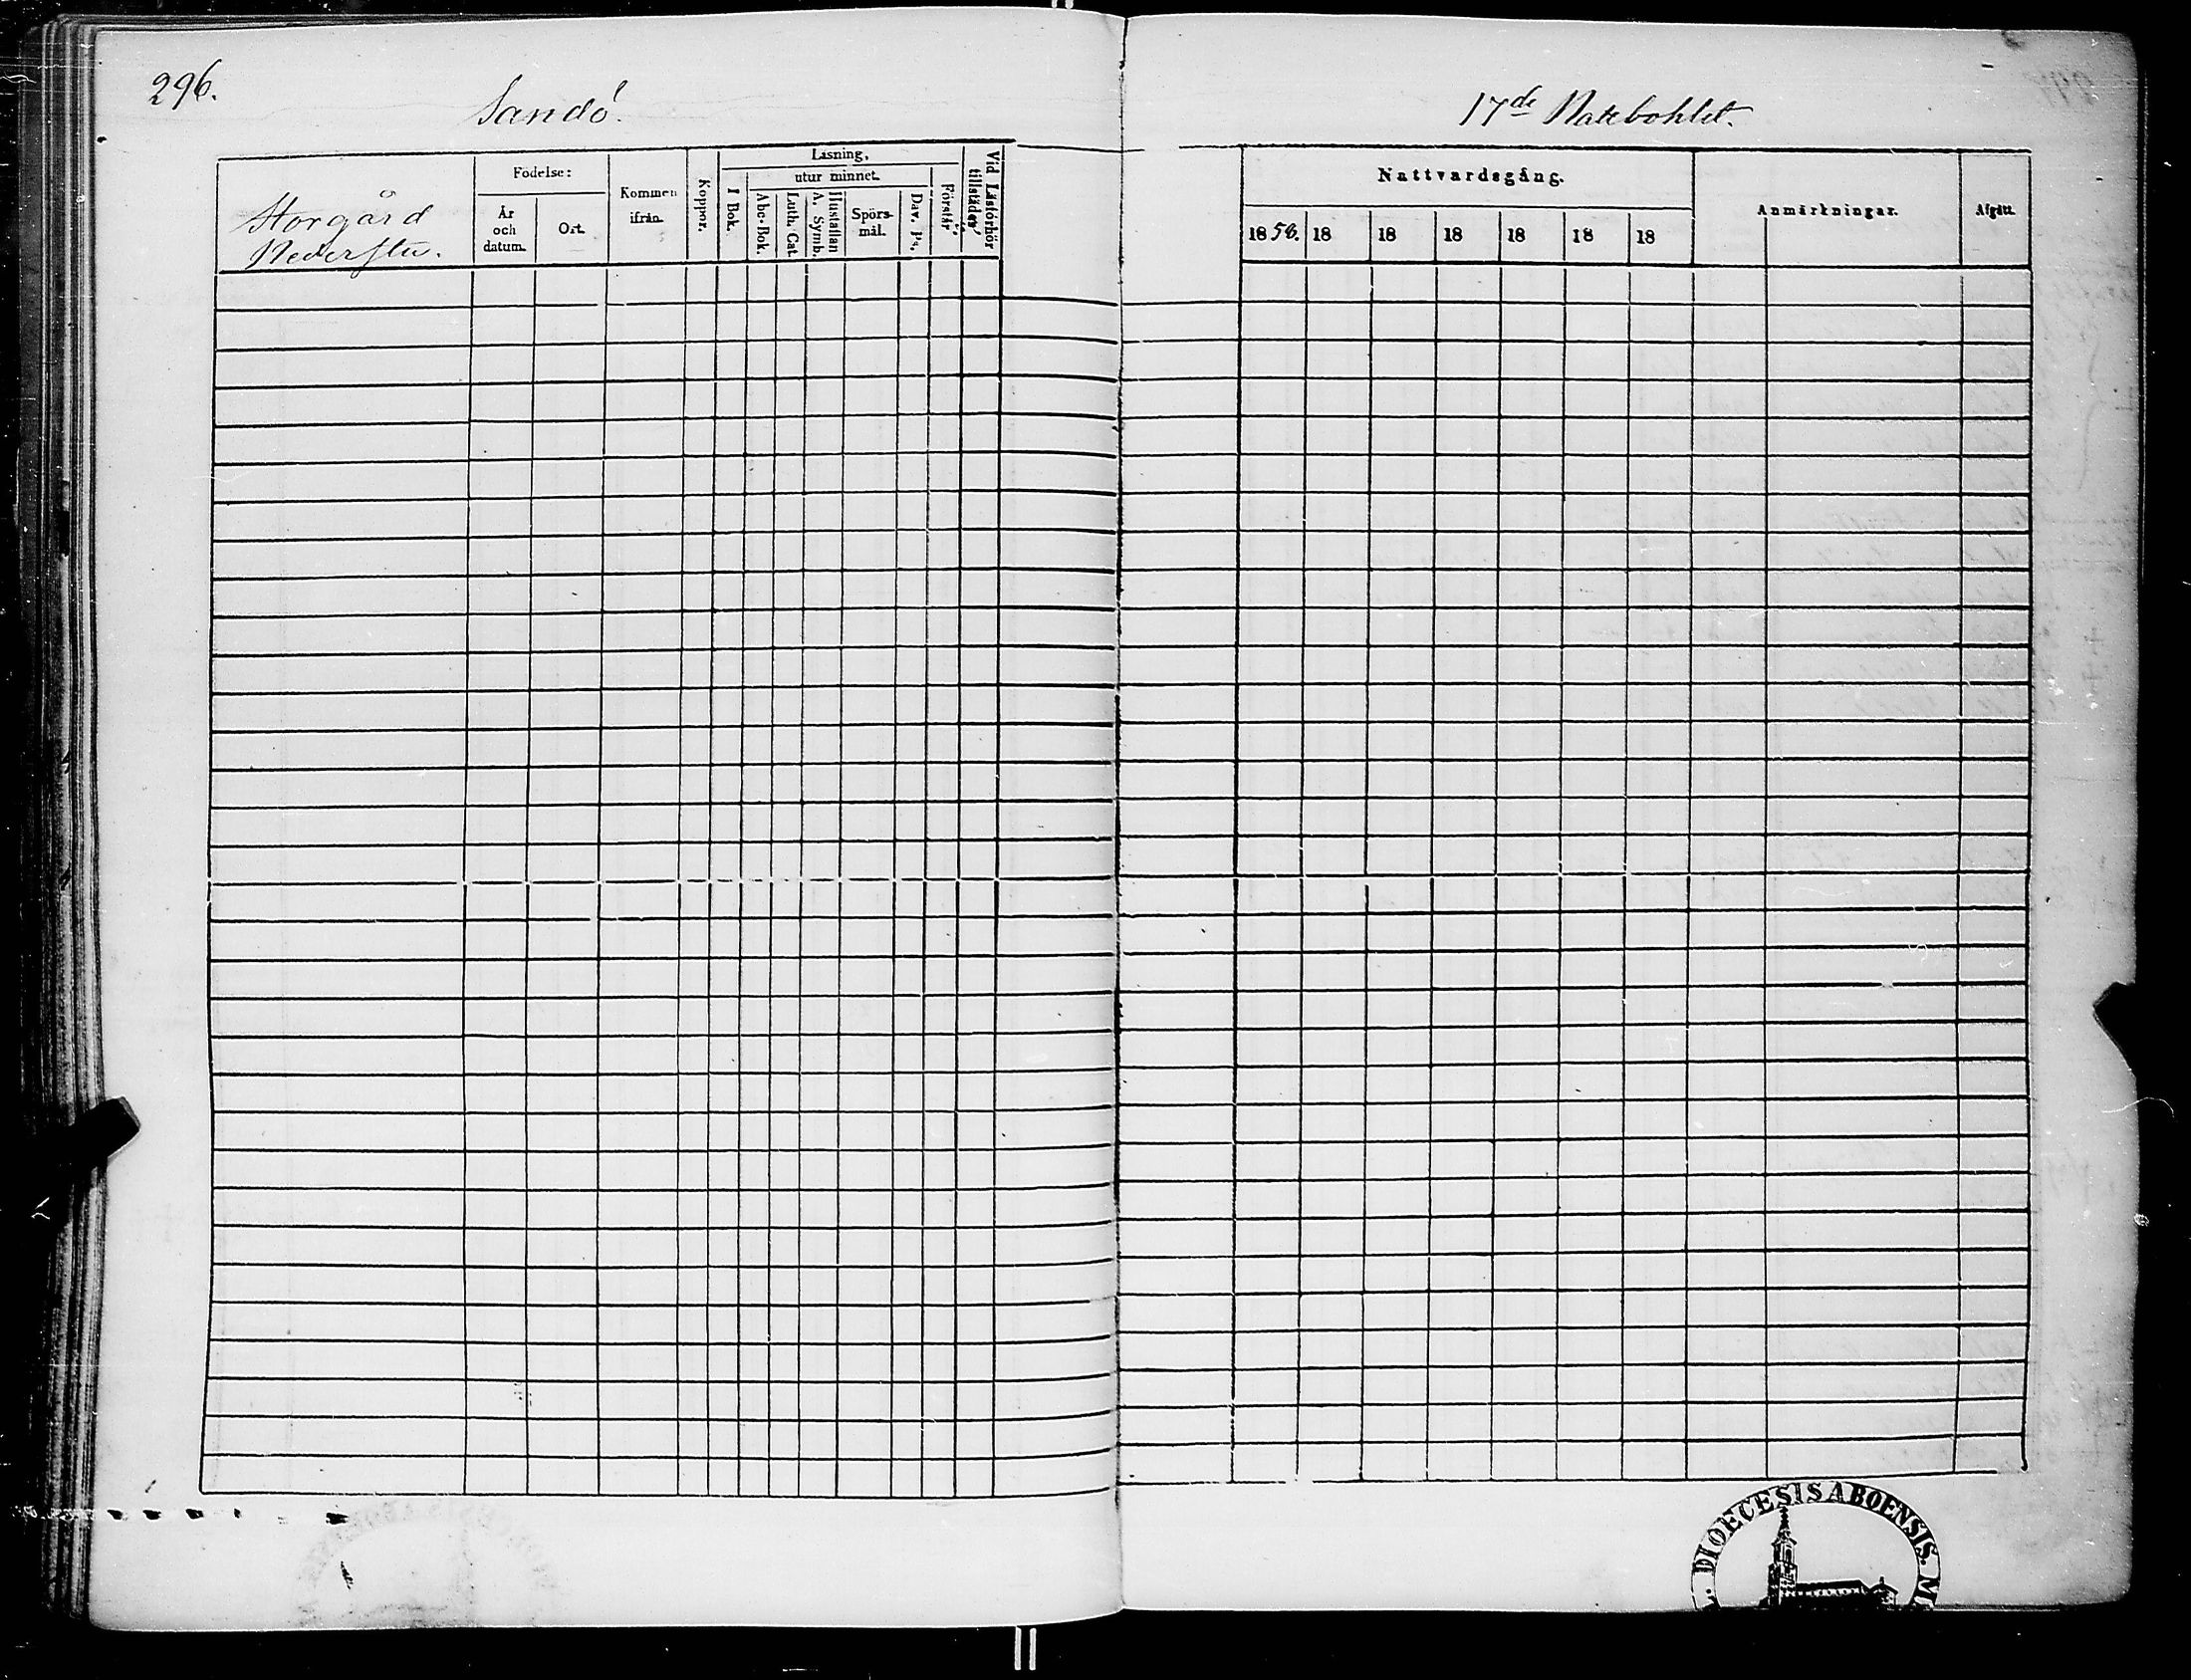 296.
Sandö.
17de Notebohlet.
Storgård
Nederstu.
Födelse:
År
och
datum.
Ort.
Kommen
ifrån.
Koppor.
Läsning,
I Bok.
utur minnet.
Abc-Bok.
Luth. Cat.
Hustaflan
A. Symb.
Spörs-
mål.
Dav. Ps.
Förstår
Vid Läsförhör
tillstädes
Nattvardsgång.
1858. 18 18 18 18 18 18
Anmärkningar.
Afgått.
DIOECESIS ABOENSIS. M